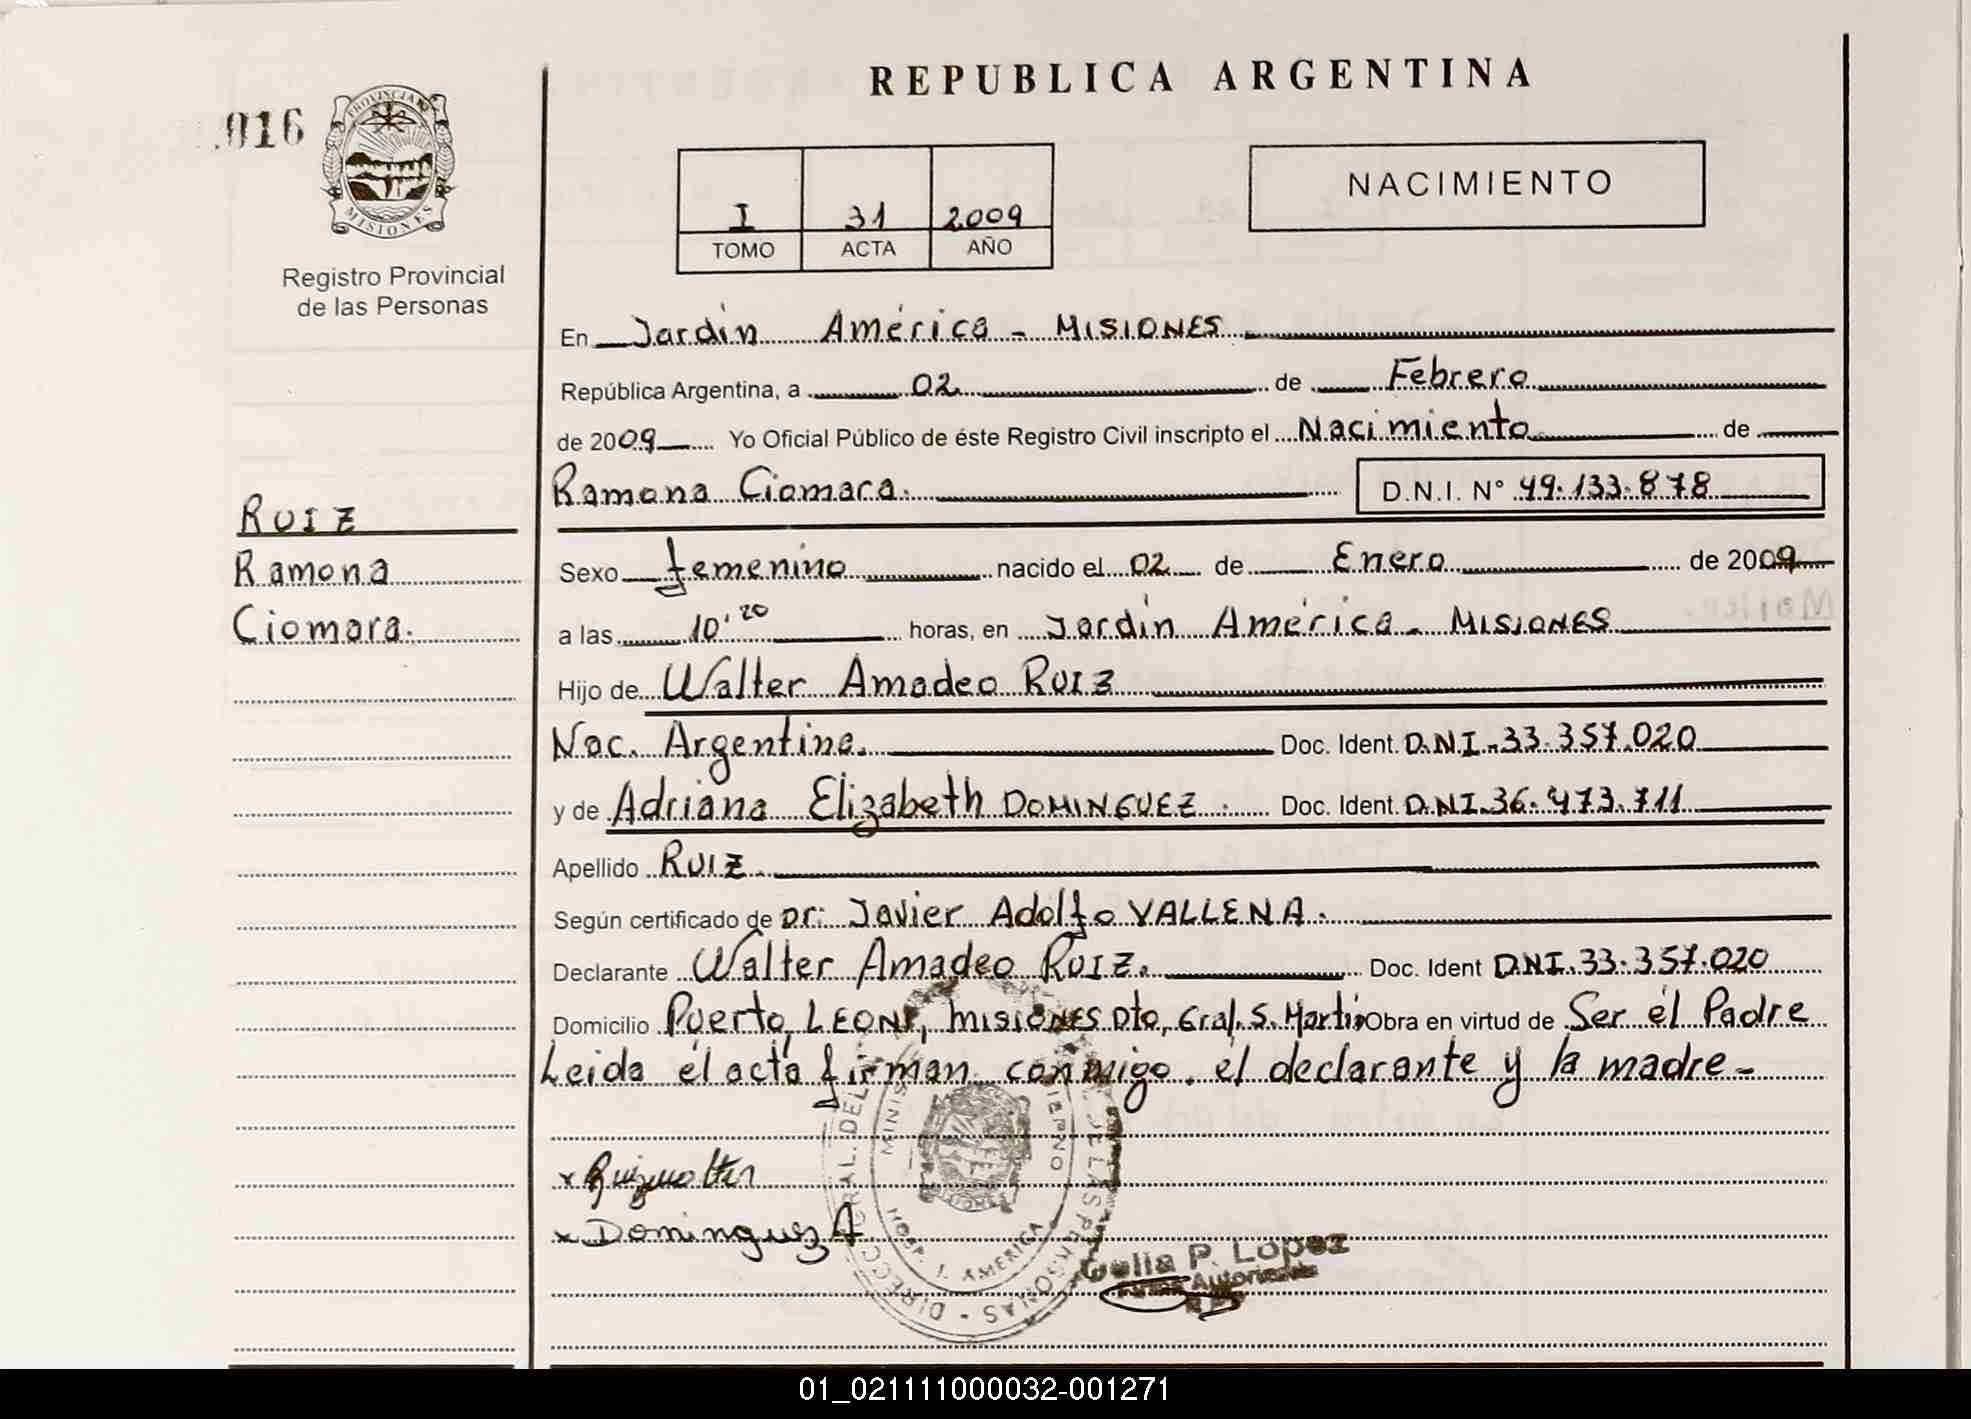 REPUBLICA ARGENTINA
016
PROVINCIA
MISIONES
Registro Provincial
de las Personas
NACIMIENTO
I 31 2009
TOMO ACTA AÑO
En Jardín América - MISIONES
República Argentina, a 02 de Febrero
de 2009 Yo Oficial Público de éste Registro Civil inscripto el Nacimiento de
Ramona Ciomara. D.N.I. N° 49.133.878
RUIZ
Ramona
Ciomara.
Sexo femenino nacido el 02 de Enero de 2009
a las 10'20 horas, en Jardín América - MISIONES
Hijo de Walter Amadeo RUIZ
Nac. Argentina. Doc. Ident. D.N.I. 33.357.020
y de Adriana Elizabeth DOMINGUEZ. Doc. Ident. D.N.I. 36.473.711
Apellido RUIZ
Según certificado de Dr: Javier Adolfo VALLENA.
Declarante Walter Amadeo RUIZ. Doc. Ident D.N.I. 33.357.020
Domicilio Puerto LEONI, MISIONES Dto, Gral. S. Martin Obra en virtud de Ser él Padre
Leida él acta firman conmigo, él declarante y la madre-
x Ruiz Walter
x Dominguez A
HOSP. J. AMERICA
P. Lopez
01_021111000032-001271